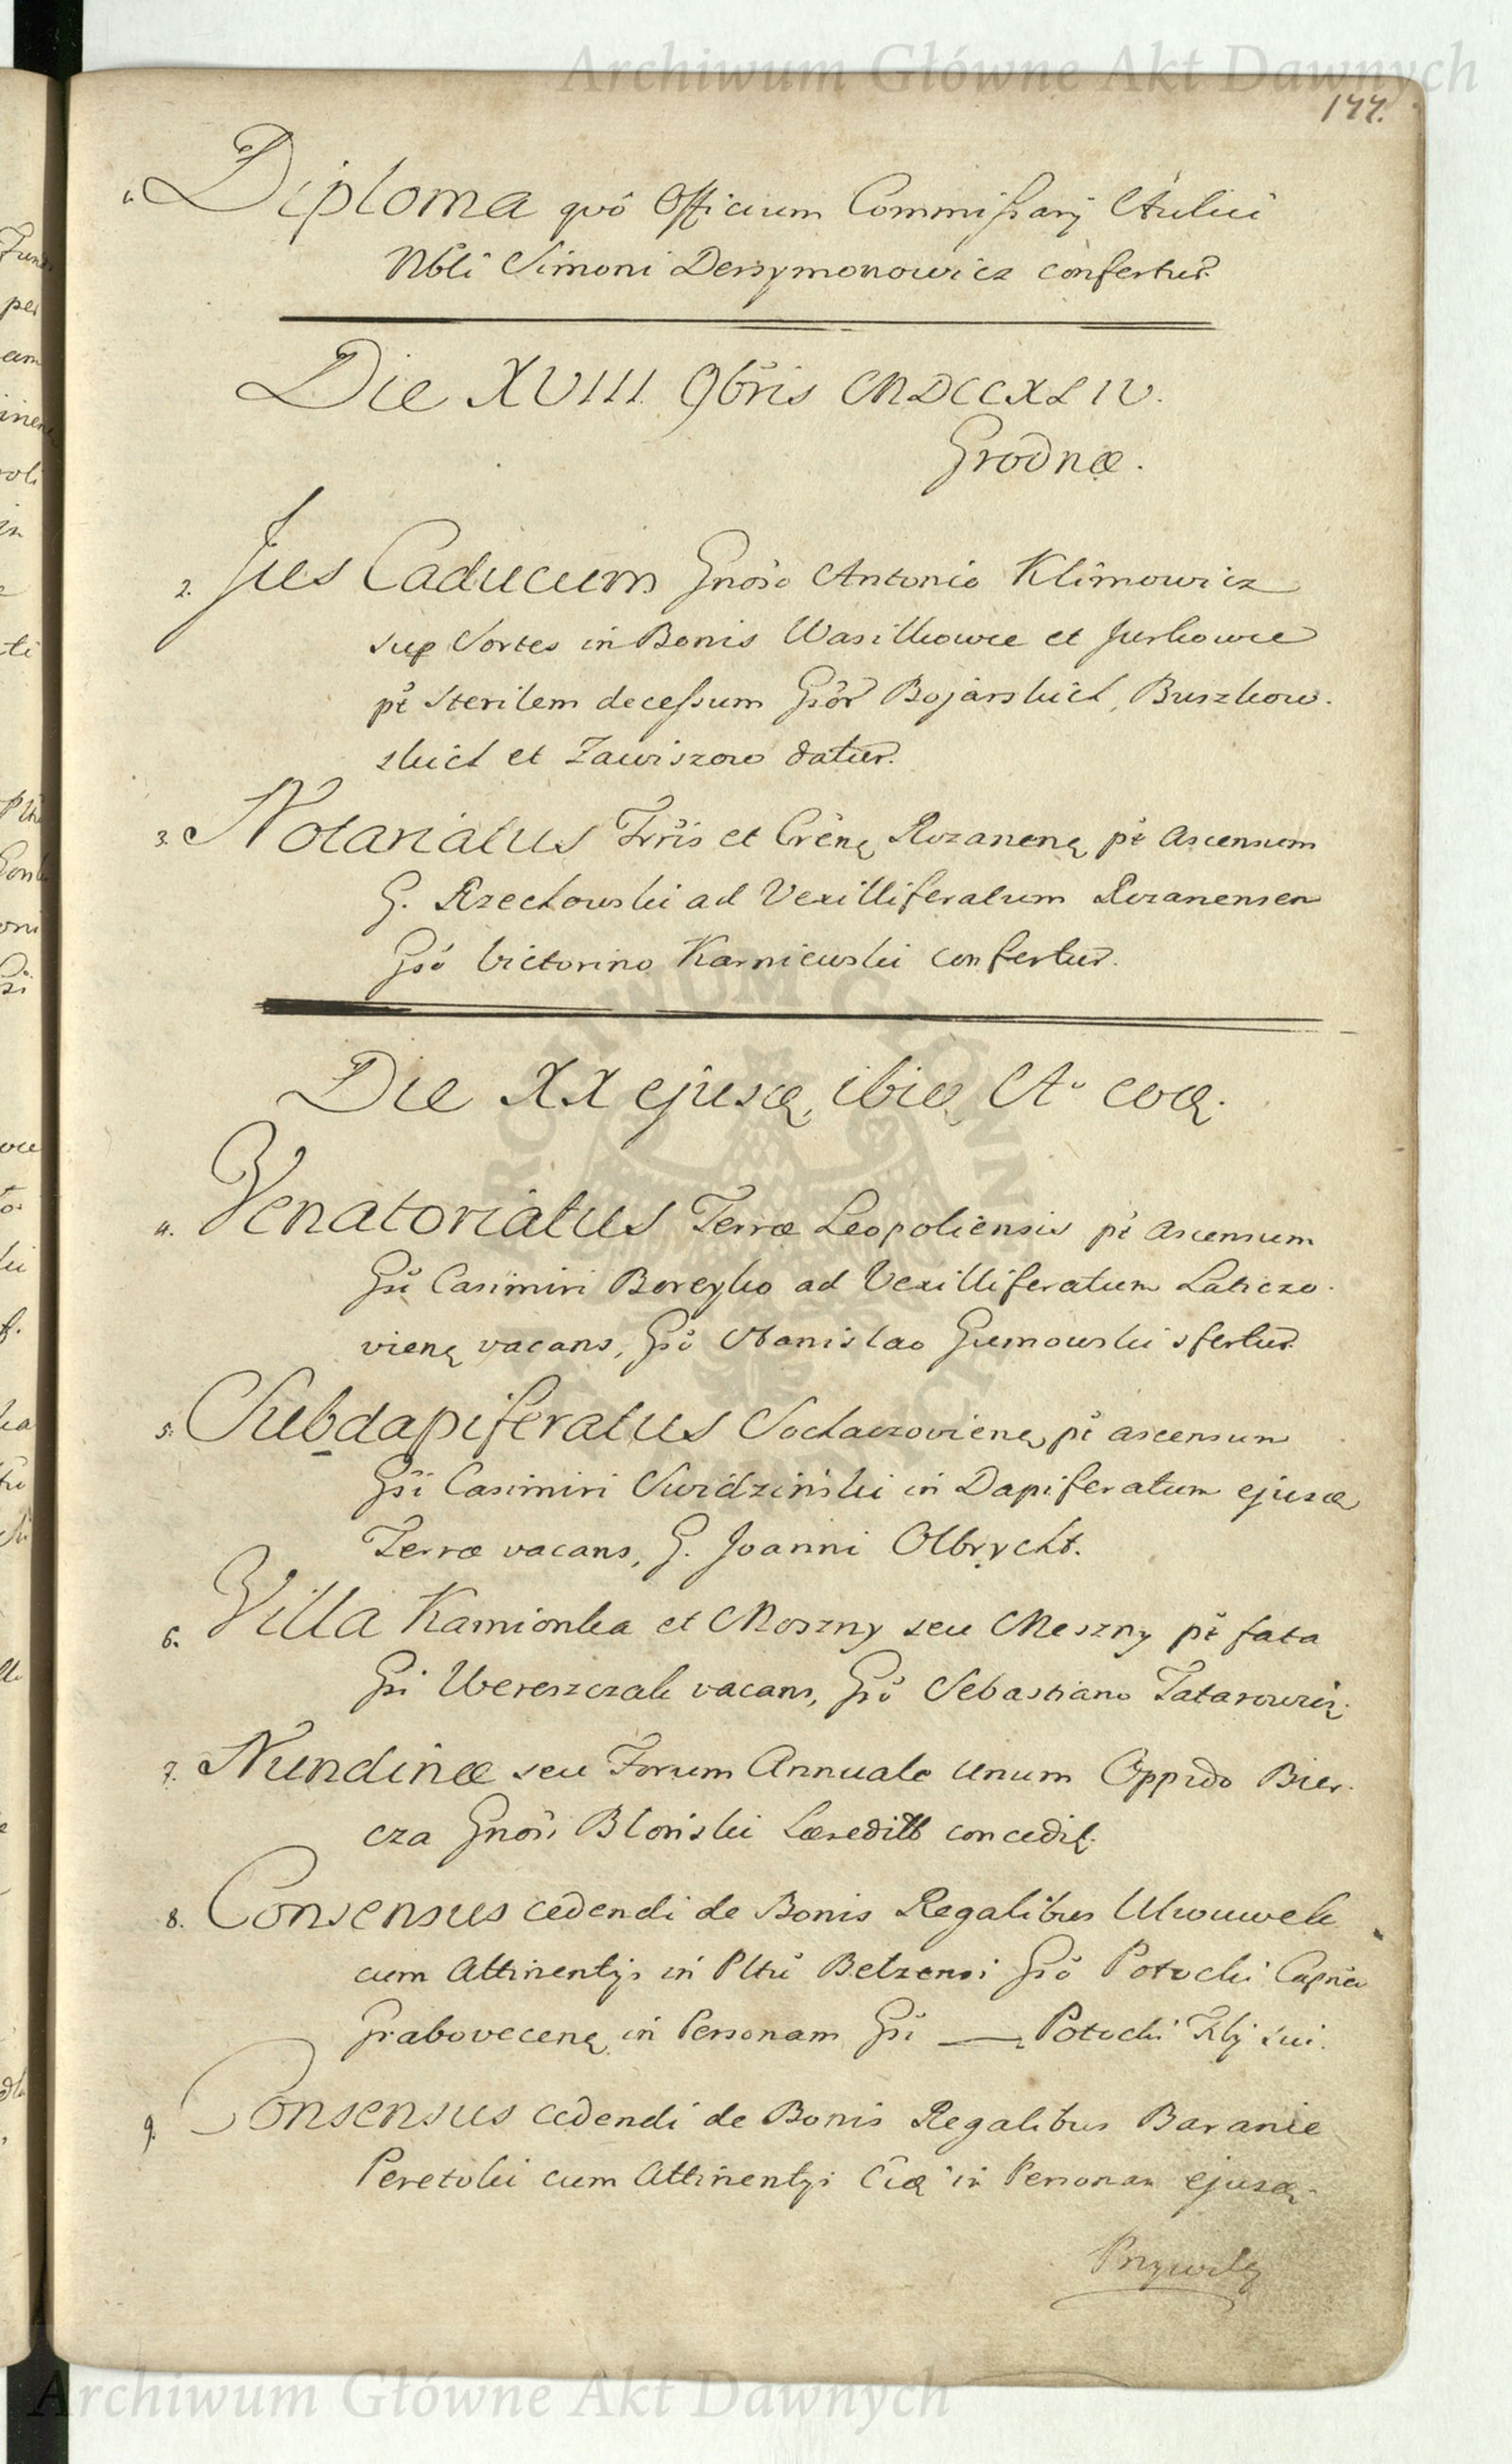 Archiwum Główne Akt Dawnych
177.
1. Diploma quô Officium Commissarij Aulici
Nbli Simoni Derszymonowicz confertur.
Die XVIII 9bris MDCCXLIV.
Grodnæ.
2. Jus Caducum Gnoso Antonio Klimowicz
sup Sortes in Bonis Wasilkowce et Jurkowce
pt sterilem decessum Gsor Bojarskich, Buszkow-
skich et Zawiszow datur.
3. Notariatus Trris et Crens Rozanens pt ascensum
G. Rzechowski ad Vexilliferatum Rozanensem
Gso Victorino Karniewski confertur.
Die XX ejusd, ibid, Ao eod.
4. Venatoriatus Terræ Leopoliensis pt ascensum
Gsi Casimiri Boreyko ad Vexilliferatum Laticzo-
viens vacans, Gso Stanislao Gumowski sfertur.
5. Subdapiferatus Sochaczoviens, pt ascensum
Gsi Casimiri Swidzinski in Dapiferatum ejusd
Terræ vacans, G. Joanni Olbrycht.
6. Villa Kamionka et Moszny seu Meszny pt fata
Gsi Wereszczak vacans, Gso Sebastiano Tatarowicz.
7. Nundinæ seu Forum Annuale unum Oppido Bier-
cza Gnosi Blonski hæreditt conceditr.
8. Consensus cedendi de Bonis Regalibus Uhrouwek
cum Attinentys in Pltu Belzensi Gso Potocki Capneo
Grabovecens in Personam Gsi — Potocki Flij sui.
9. Consensus cedendi de Bonis Regalibus Baranie
Peretoki cum Attinentys Eid in Personam ejusd.
Przywiley
Archiwum Główne Akt Dawnych